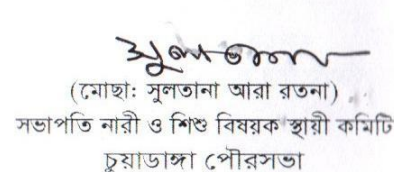 (মোছা: সুলতানা আরা রতনা)
সভাপতি নারী ও শিশু বিষয়ক স্থায়ী কমিটি
চুয়াডাঙ্গা পৌরসভা